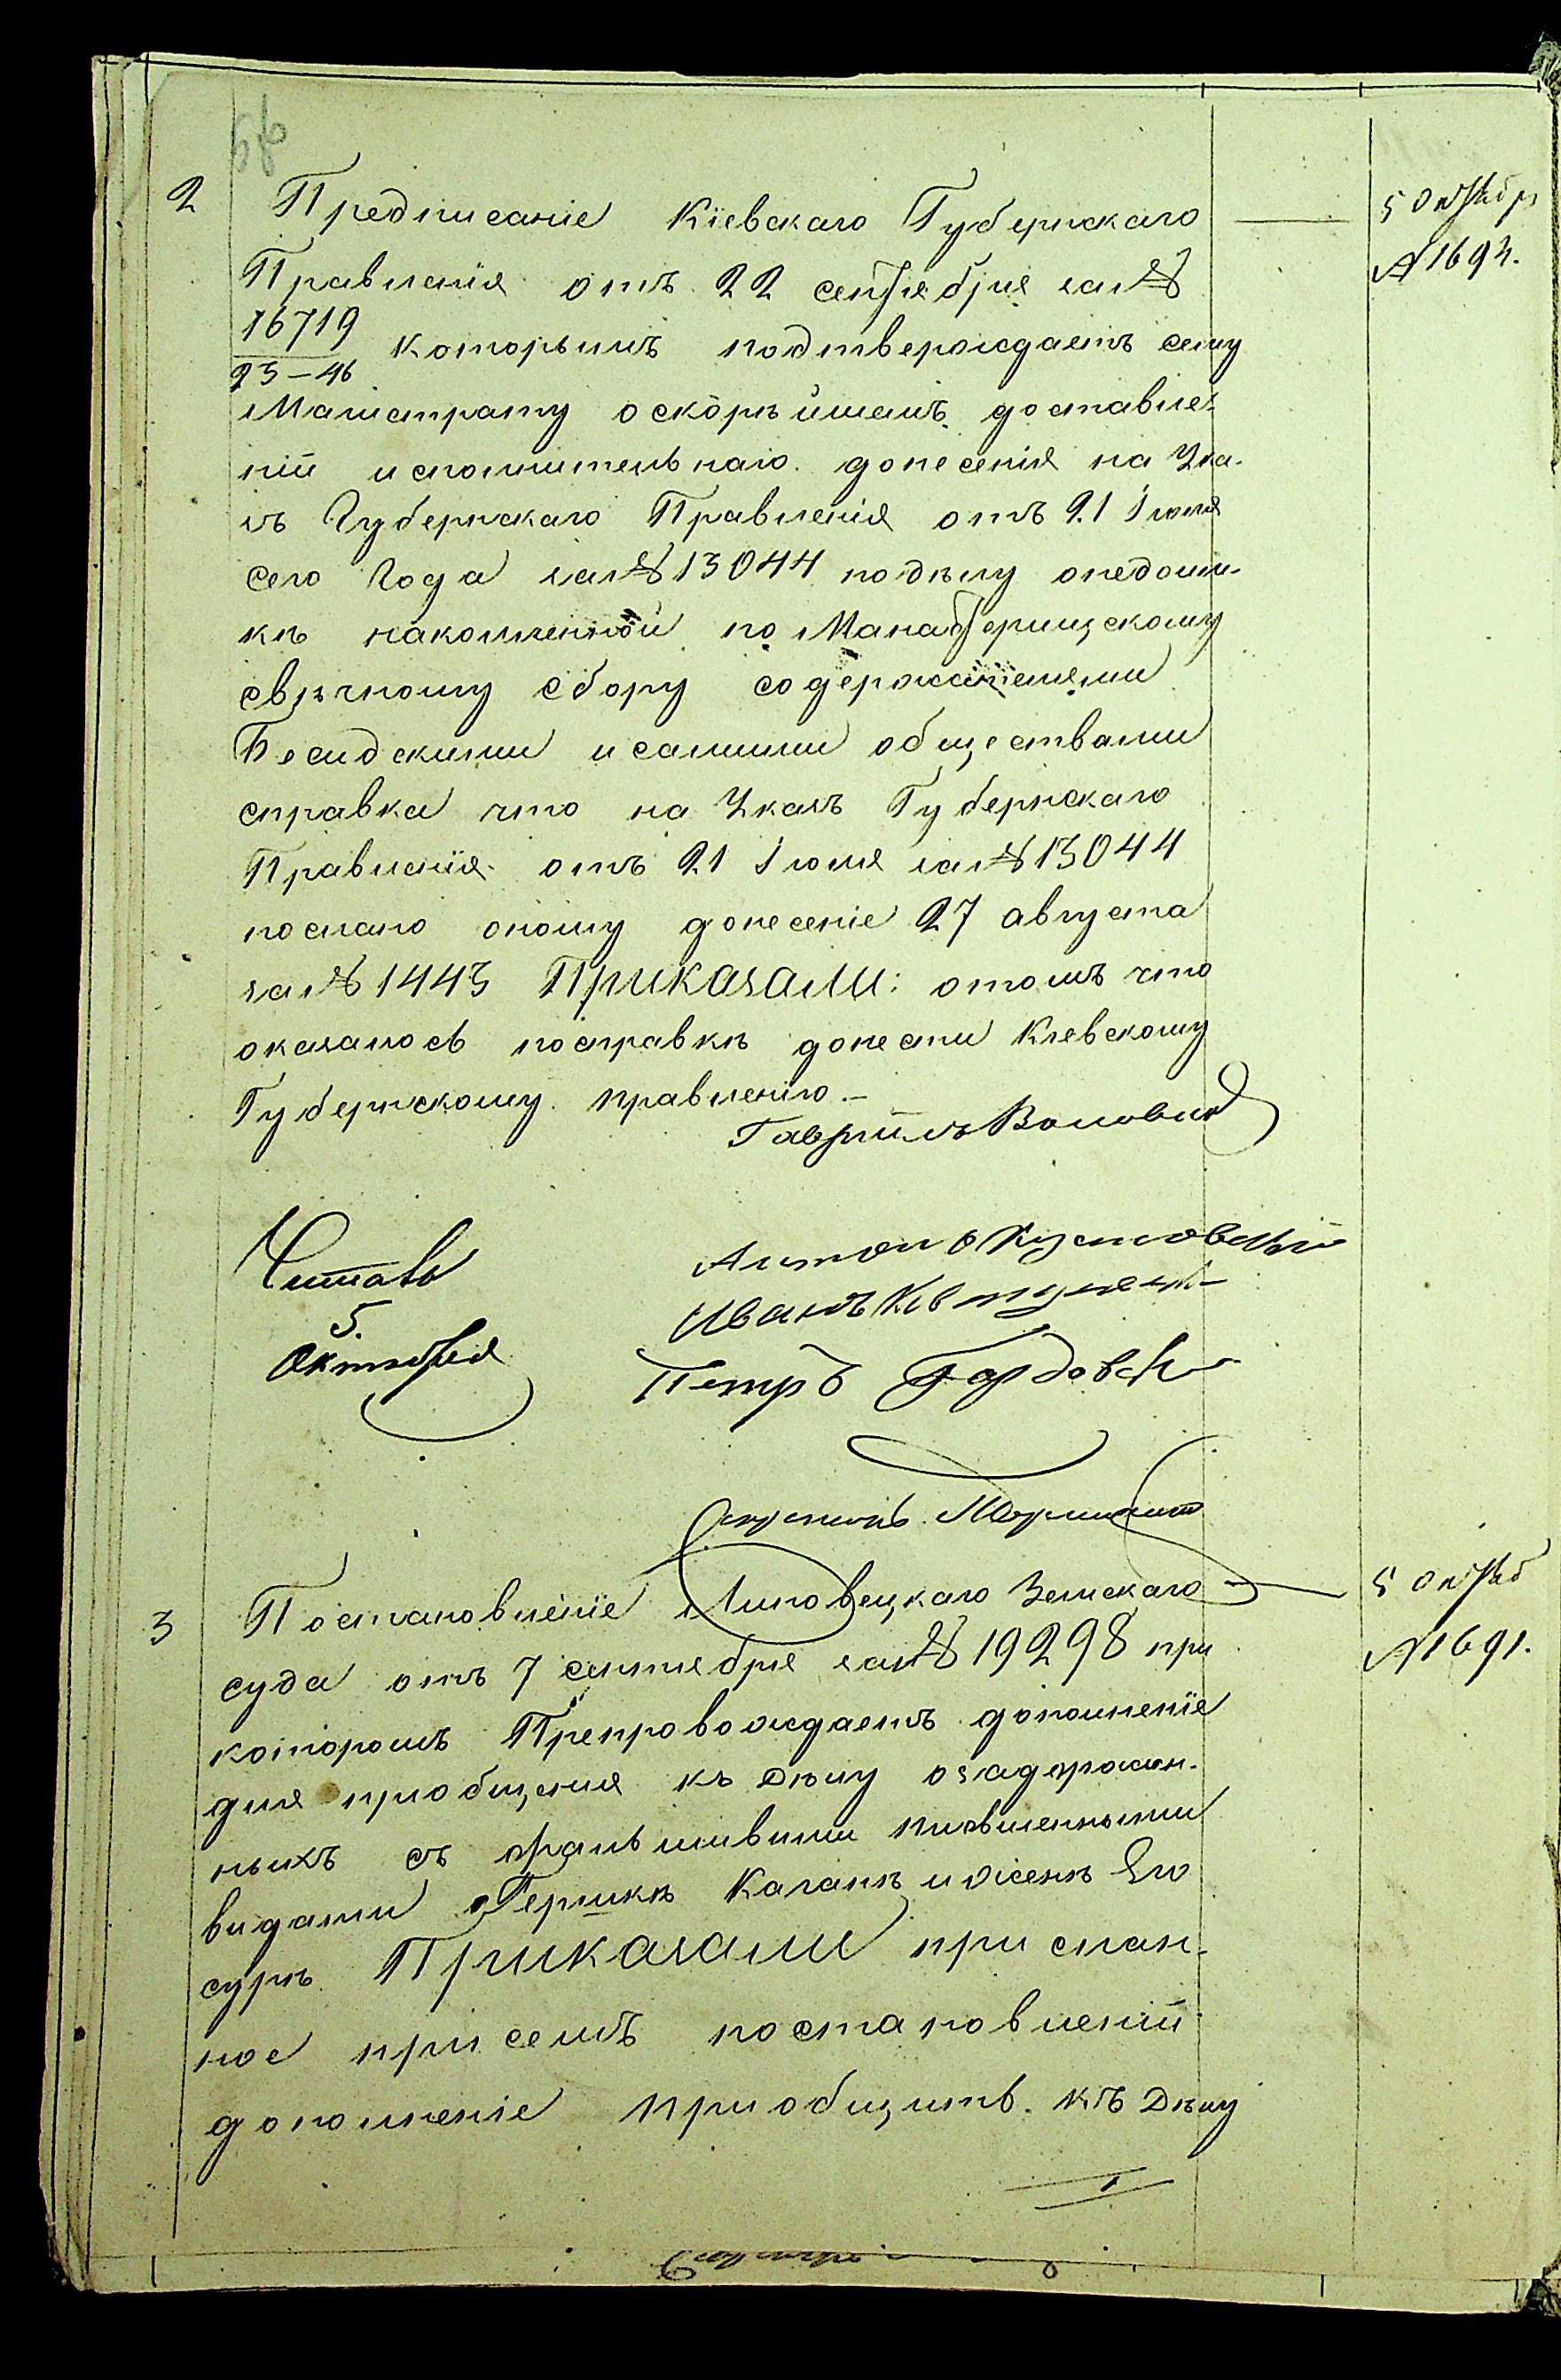 2 Предписаніе Кіевскаго Губернскаго — 5 Октябр
Правленія отъ 22 сентября за № №1692.
16719
23-46 которымъ подтверждаетъ сему
Магистрату о скорѣйшемъ доставле-
ніи исполнительнаго донесенія на Ука-
зъ Губернскаго Правленія отъ 21 Іюля
сего Года за № 13044 по дѣлу о недоим-
кѣ накопленной по Манастерищскому
свѣчному сбору содержателями
и самими обществами
справка что на Указъ Губернскаго
Правленія отъ 21 Іюля за № 13044
послано оному донесеніе 27 августа
за № 1443 Приказали: о томъ что
оказалось по справкѣ донести Кіевскому
Губернскому правленію.—
Гавріилъ
Читалъ
5.
Октября
Антон
Иванъ
Петръ
3 Постановленіе Липовецкаго Земскаго — 5 Октяб
суда отъ 7 сентября за № 19298 при №1691.
которомъ Препровождаетъ дополненіе
для пріобщенія къ Дѣлу о задержан-
ныхъ съ фальшивыми письменными
видами Гершкѣ Каганѣ и женѣ Его
сурѣ Приказали присланное
ное при семъ постановленіи
дополненіе пріобщить къ Дѣлу